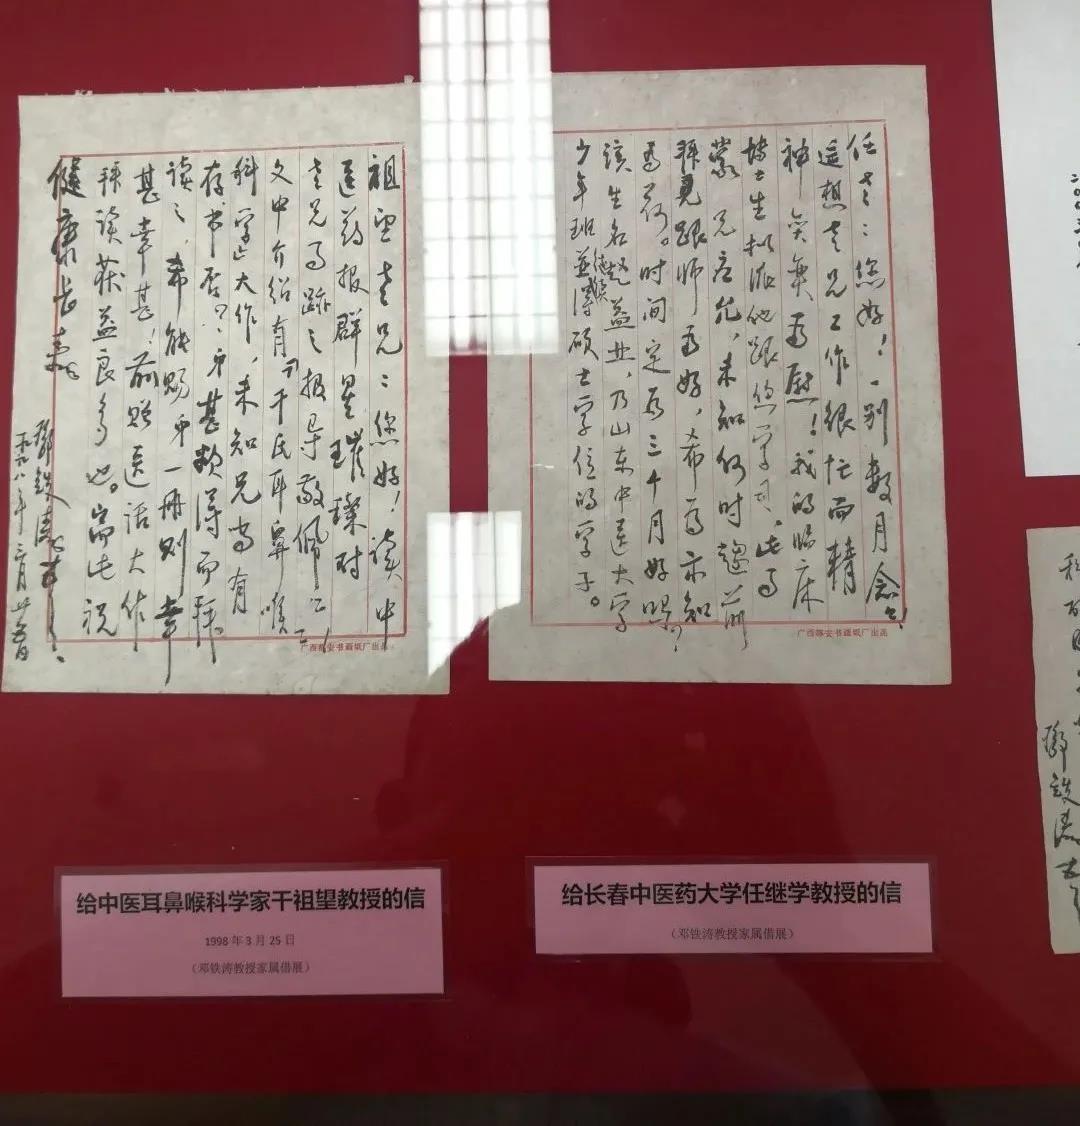 祖望老兄：您好！读中
医药报群星璀璨对
老兄事迹之报导敬佩之至！
文中介绍有《干氏耳鼻喉
科学》大作，未知兄尚有
存书否？弟甚欲得而拜
读之，希能赐弟一册则幸
甚幸甚！前赠医话大作
拜读获益良多也。耑此 祝
健康长寿
邓铁涛
一九九八年三月廿五日
广西都安书画纸厂出品
任老：您好！一别数月念念！
遥想老兄工作很忙而精
神奕奕为慰！我的临床
博士生拟派他跟您学习，此事
蒙 兄应允，未知何时趋前
拜见跟师为好，希为示知
为荷。时间定为三个月好吗？
该生名赵益业，乃山东中医大学
少年班并得硕士学位的学子。
广西都安书画纸厂出品
二〇〇三年
邓铁涛
给中医耳鼻喉科学家干祖望教授的信
1998 年 3 月 25 日
（邓铁涛教授家属借展）
给长春中医药大学任继学教授的信
（邓铁涛教授家属借展）